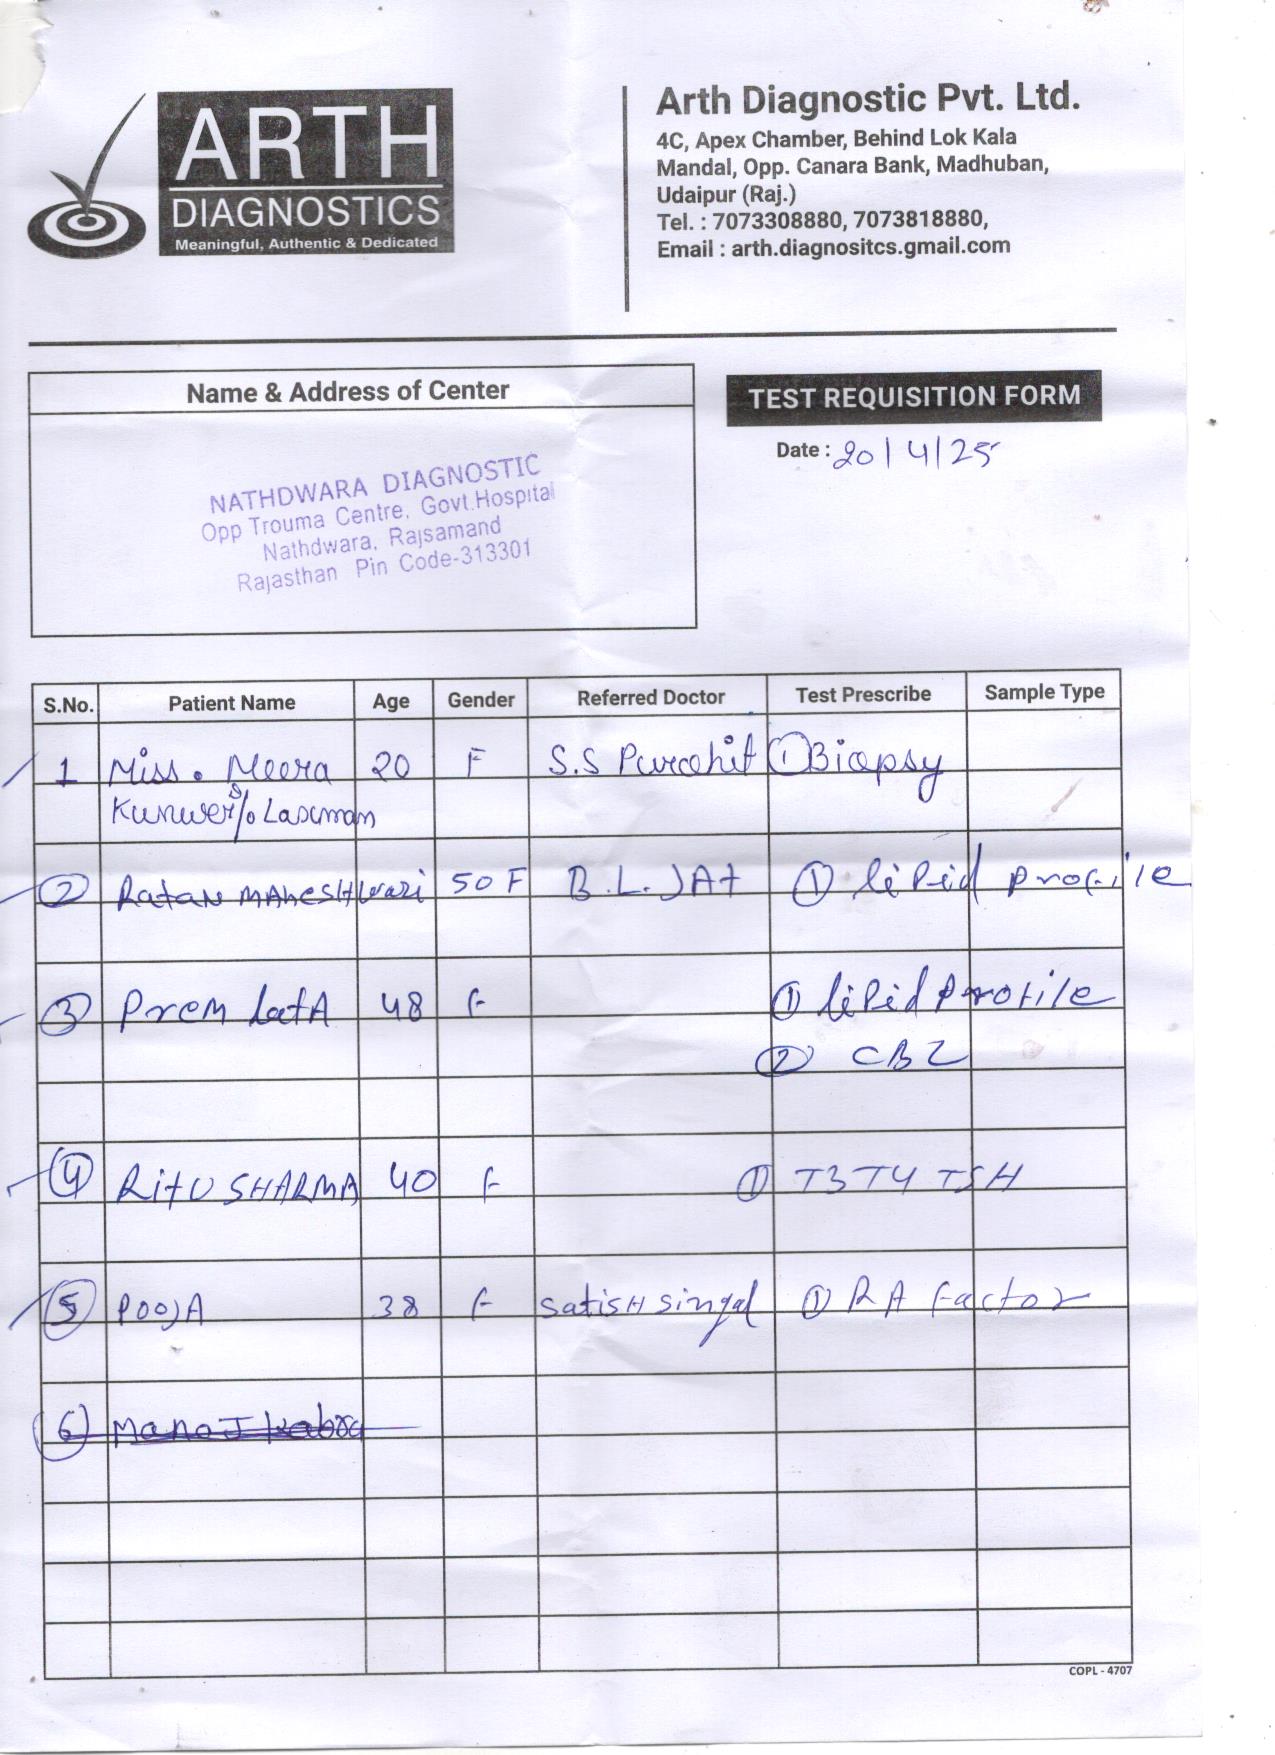 ARTH
DIAGNOSTICS
Meaningful, Authentic & Dedicated
Arth Diagnostic Pvt. Ltd.
4C, Apex Chamber, Behind Lok Kala
Mandal, Opp. Canara Bank, Madhuban,
Udaipur (Raj.)
Tel. : 7073308880, 7073818880,
Email : arth.diagnositcs.gmail.com
Name & Address of Center
NATHDWARA DIAGNOSTIC
Opp Trouma Centre, Govt.Hospital
Nathdwara, Rajsamand
Rajasthan Pin Code-313301
TEST REQUISITION FORM
Date : 20/4/25
S.No. Patient Name Age Gender Referred Doctor Test Prescribe Sample Type
1 Miss. Meera 20 F S.S Purohit ① Biopsy
Kunwer D/o Laxman
② Ratan MAheSHwari 50 F B.L. JAt ① liPid profile
③ Prem LatA 48 F ① liPid profile
② CBC
④ RitU SHARMA 40 F ① T3 T4 TSH
⑤ POOJA 38 F SatiSH Singal ① RA Factor
⑥ ManoJ Kabra
COPL - 4707